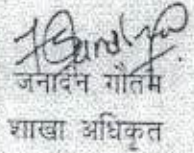 जनार्दन गौतम
शाखा अधिकृत